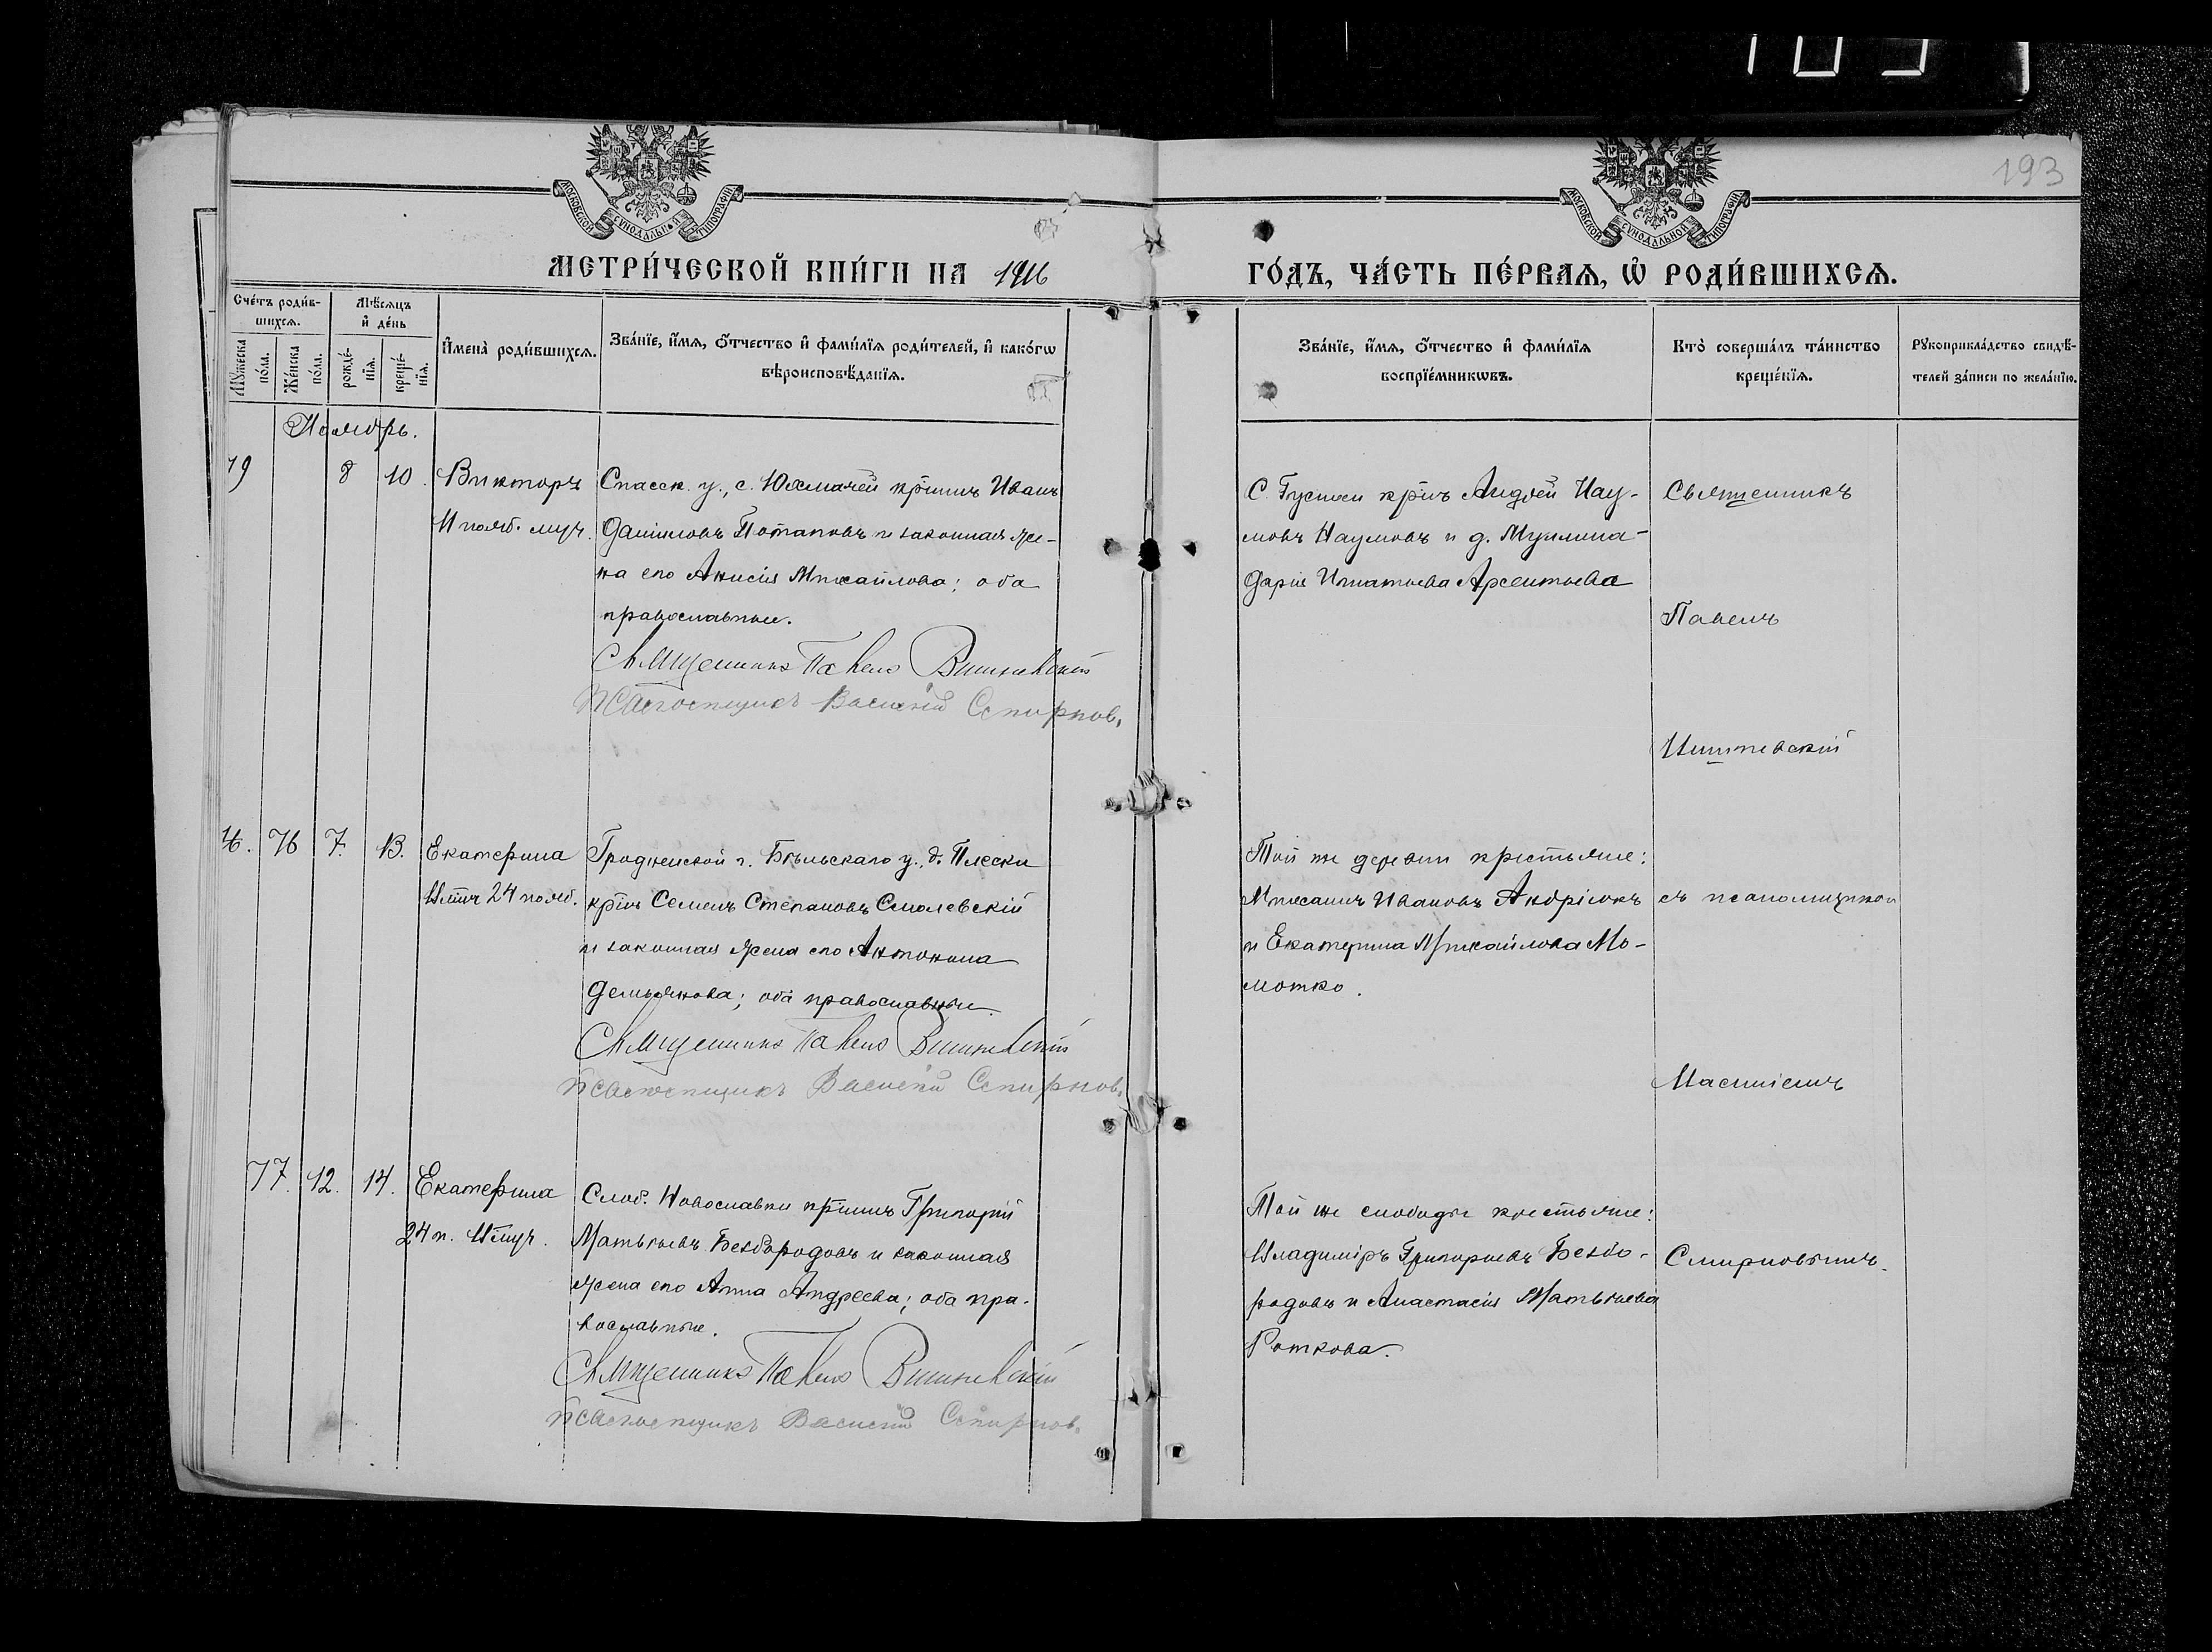 193
МОСКОВСКОЙ СѴНОДАЛЬНОЙ ТИПОГРАФІИ
МОСКОВСКОЙ СѴНОДАЛЬНОЙ ТИПОГРАФІИ
МЕТРИ́ЧЕСКОЙ КНИ́ГИ НА 1916
ГО́ДЪ, ЧА́СТЬ ПЕ́РВАѦ, Ѡ РОДИ́ВШИХСѦ.
Сче́тъ роди́в-
шихсѧ.
Мꙋжеска по́ла.
Же́нска по́ла.
Мѣ́сѧцъ
и҆ де́нь
рожде́-
нїѧ.
креще́-
нїѧ.
И҆мена̀ роди́вшихсѧ.
Зва́нїе, и҆́мѧ, ѻ҆́тчество и҆ фами́лїѧ роди́телей, и҆ како́гѡ
вѣроисповѣ́данїѧ.
Зва́нїе, и҆́мѧ, ѻ҆́тчество и҆ фами́лїѧ
воспрїе́мникѡвъ.
Кто̀ соверша́лъ та́инство
креще́нїѧ.
Рꙋкоприкла́дство свидѣ́-
телей за́писи по жела́нїю.
Ноябрь.
79 8 10. Викторъ
11 нояб. муч.
Спасск. у., с. Юхмачей кр̃нинъ Иванъ
Даниловъ Потаповъ и законная же-
на его Анисія Михайлова; оба
православные.
Священникъ Павелъ Вишневскій
Псаломщикъ Василій Смирнов.
С. Гусихи кр̃нъ Андрей Нау-
мовъ Наумовъ и д. Муллина
Дарія Игнатьева Арсентьева
Священникъ
Павелъ
Вишневскій
76 7. 13. Екатерина
24 нояб.
Гродненской г. Бѣльскаго у. д. Плески
кр̃нъ Семенъ Степановъ Смолевскій
и законная жена его Антонина
Демьянова; оба православные.
Священникъ Павелъ Вишневскій
Псаломщикъ Василій Смирнов.
Той же деревни крестьяне:
Михаилъ Ивановъ Андріюкъ
и Екатерина Михайлова Мо-
мотко.
съ псаломщикомъ
Василіемъ
77. 12. 14. Екатерина
24 н.
Слоб. Новославки кр̃нинъ Григорій
Матвѣевъ Безбородовъ и законная
жена его Анна Андреева; оба пра-
вославные.
Священникъ Павелъ Вишневскій
Псаломщикъ Василій Смирнов.
Той же слободы крестьяне:
Владиміръ Григорьевъ Безбо-
родовъ и Анастасія Матвѣева
Роткова.
Смирновымъ.